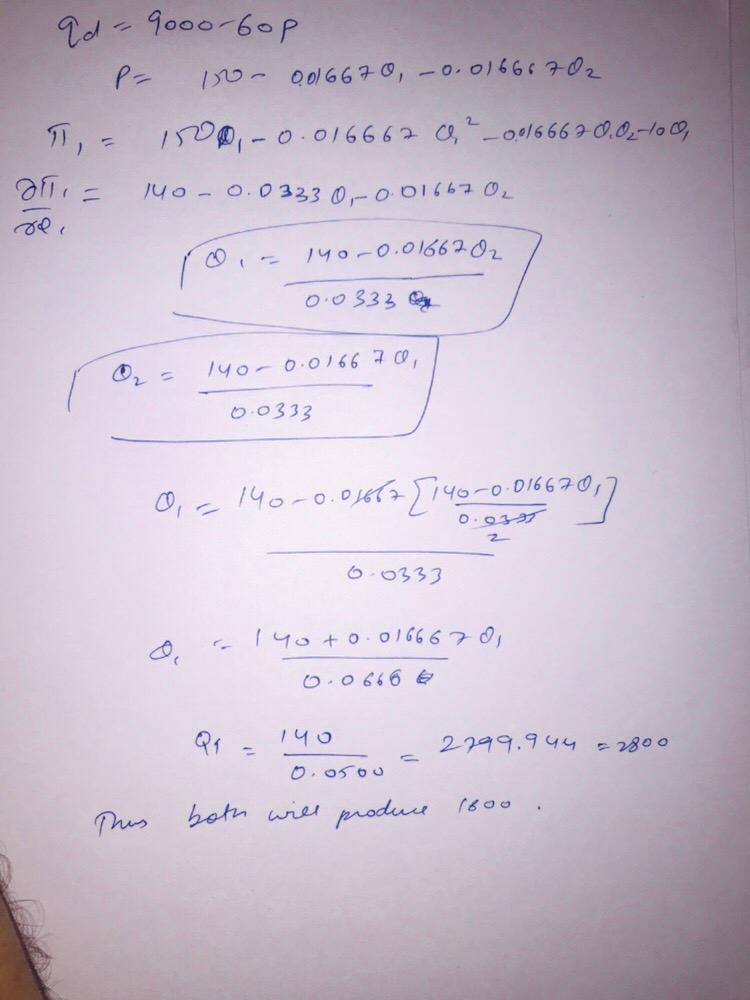 qd = 9000-60P
P= 150- 0.016670₁ -0.01666702
Π₁ = 150Q₁ - 0.016667 Q₁² - 0.016667 Q₁Q₂-10Q₁
∂Π₁/∂Q₁ = 140 - 0.0333Q₁ - 0.01667Q₂
Q₁ = 140-0.01667Q₂ / 0.0333
Q₂ = 140-0.01667Q₁ / 0.0333
Q₁ = 140-0.01667[140-0.01667Q₁ / 0.0333 2] / 0.0333
Q₁ = 140+0.016667Q₁ / 0.0666
Q1 = 140 / 0.0500 = 2799.944 = 2800
Thus both will produce 1800.